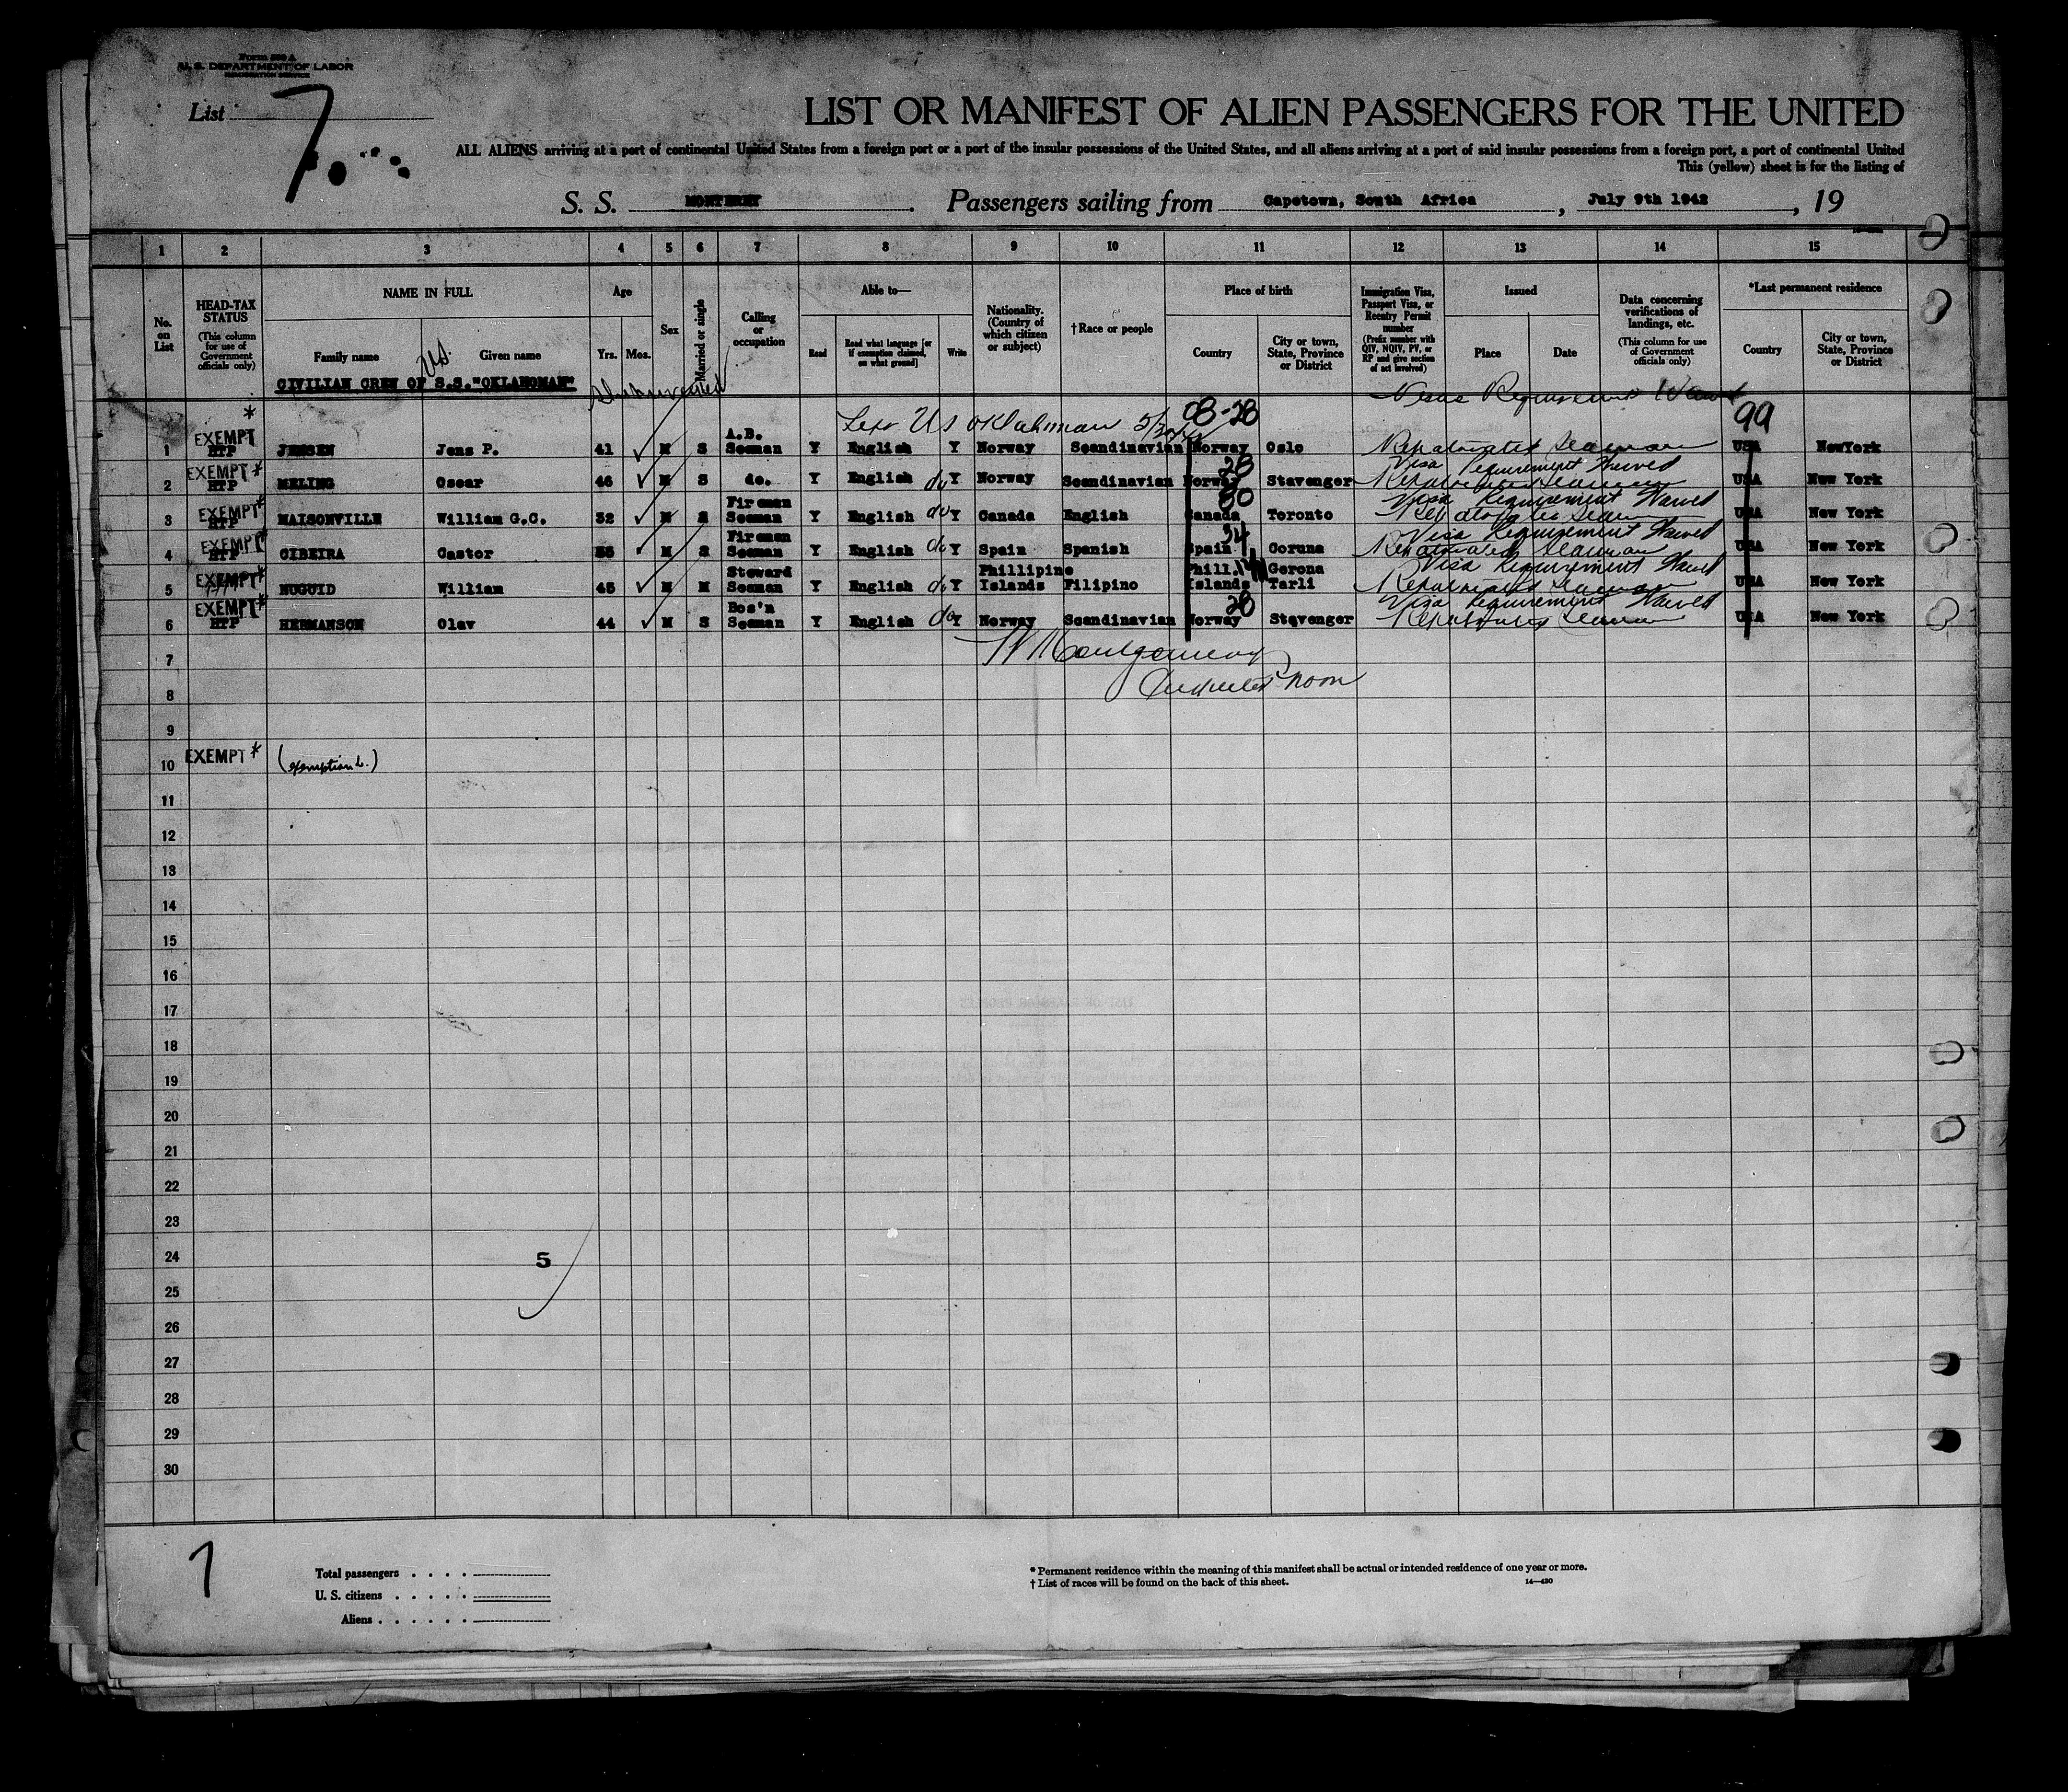 Form 500 A
U. S. DEPARTMENT OF LABOR
IMMIGRATION SERVICE
List 7
LIST OR MANIFEST OF ALIEN PASSENGERS FOR THE UNITED
ALL ALIENS arriving at a port of continental United States from a foreign port or a port of the insular possessions of the United States, and all aliens arriving at a port of said insular possessions from a foreign port, a port of continental United
This (yellow) sheet is for the listing of
S. S. MONTEREY. Passengers sailing from Capetown, South Africa, July 9th 1942, 19
1 2 3 4 5 6 7 8 9 10 11 12 13 14 15
No. on List
HEAD-TAX STATUS (This column for use of Government officials only)
NAME IN FULL
Family name Given name
Age
Yrs. Mos.
Sex
Married or single
Calling or occupation
Able to—
Read
Read what language [or if exemption claimed, on what ground]
Write
Nationality. (Country of which citizen or subject)
† Race or people
Place of birth
Country
City or town, State, Province or District
Immigration Visa, Passport Visa, or Reentry Permit number (Prefix number with QIV, NQIV, PV, or RP and give section of act involved)
Issued
Place Date
Data concerning verifications of landings, etc. (This column for use of Government officials only)
*Last permanent residence
Country
City or town, State, Province or District
US.
CIVILIAN CREW OF S.S."OKLAHOMAN"
Left US Oklahoman 08-28 99
1 EXEMPT * HTP JENSEN Jens P. 41 ✓ M S A.B. Seaman Y English Y Norway Scandinavian Norway Oslo Repatriated Seaman USA NewYork
Visa Requirement Waived
2 EXEMPT * HTP MELING Oscar 46 ✓ M S do. Y English do Y Norway Scandinavian 28 Norway Stavenger Repatriated Seaman USA New York
Visa Requirement Waived
3 EXEMPT * HTP MAISONVILLE William G.C. 32 ✓ M S Fireman Seaman Y English do Y Canada English 80 Canada Toronto Repatriated Seaman USA New York
Visa Requirement Waived
4 EXEMPT * HTP CIBEIRA Castor 35 ✓ M S Fireman Seaman Y English do Y Spain Spanish 34 Spain Coruna Repatriated Seaman USA New York
Visa Requirement Waived
5 EXEMPT * HTP NUGUID William 45 ✓ M M Steward Seaman Y English do Y Phillipine Islands Filipino Phill. Islands Gerona Tarli Repatriated Seaman USA New York
Visa Requirement Waived
6 EXEMPT * HTP HERMANSON Olav 44 ✓ M S Bos'n Seaman Y English do Y Norway Scandinavian 28 Norway Stavenger Repatriated Seaman USA New York
7 Montgomery
8
9
10 EXEMPT * (exemption L.)
11
12
13
14
15
16
17
18
19
20
21
22
23
24 5
25
26
27
28
29
30
7
Total passengers . . . .
U. S. citizens . . . . .
Aliens . . . . . .
* Permanent residence within the meaning of this manifest shall be actual or intended residence of one year or more.
† List of races will be found on the back of this sheet. 14—430